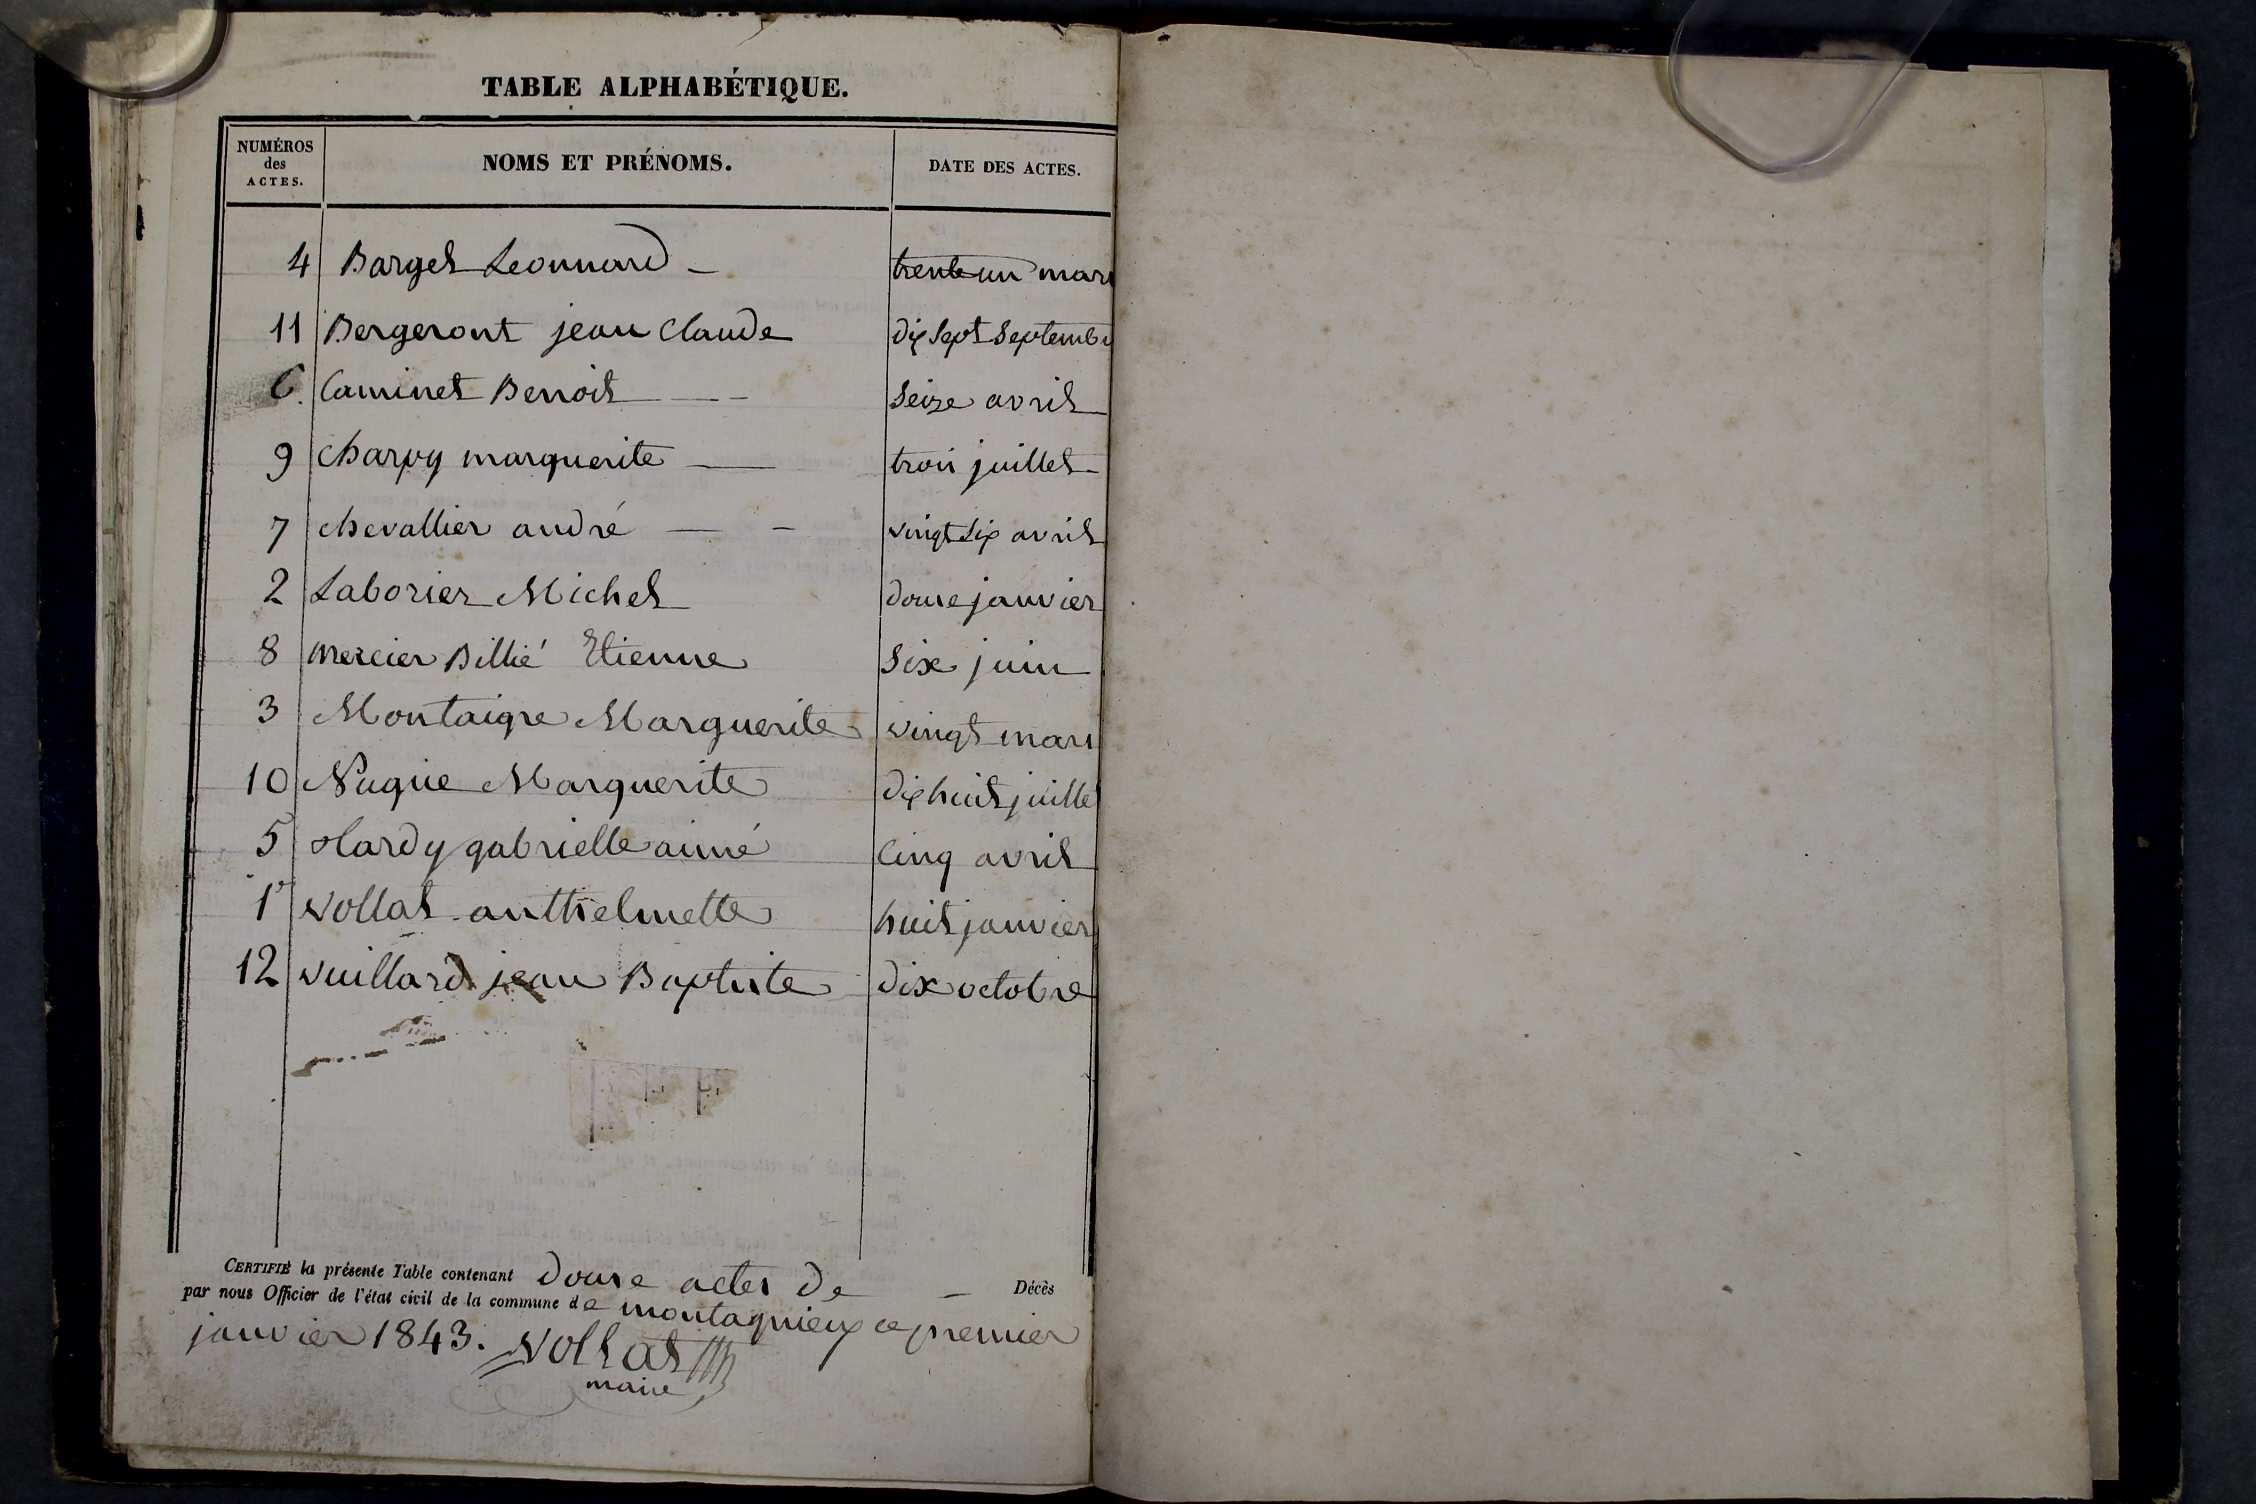 TABLE ALPHABÉTIQUE.
NUMÉROS des ACTES. NOMS ET PRÉNOMS. DATE DES ACTES.
4 Barget Leonnard - trente un mars
11 Bergeront jean Claude dix sept septembre
6. Caminet Benoit - - seize avril
9 Charvy marguerite - trois juillet
7 chevallier andré - - vingt six avril
2 Laborier Michel douse janvier
8 mercier Billié Etienne six juin
3 Montaigre Marguerite vingt mars
10 Nugue Marguerite dix huit juillet
5 Hardy gabrielle aimé cinq avril
1er vollat anthelmette huit janvier
12 vuillard jean Baptiste dix octobre
CERTIFIÉ la présente Table contenant douse actes de - Décès
par nous Officier de l'état civil de la commune de montagnieux ce premier
janvier 1843. vollat
maire